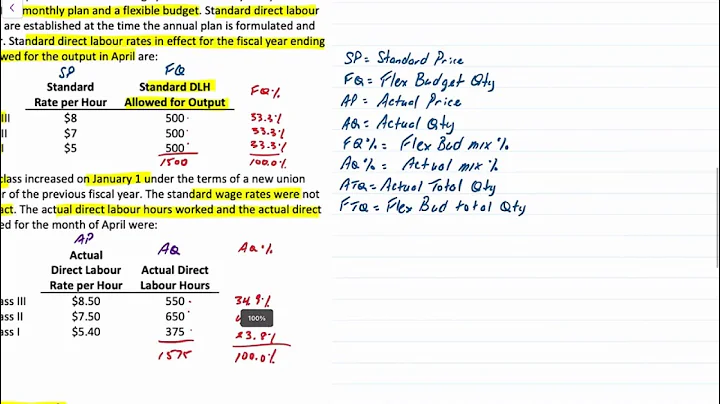 monthly plan and a flexible budget. Standard direct labour
are established at the time the annual plan is formulated and
r. Standard direct labour rates in effect for the fiscal year ending
wed for the output in April are:
SP FQ
Standard Standard DLH FQ%
Rate per Hour Allowed for Output
III $8 500 33.3%
II $7 500 33.3%
I $5 500 33.3%
1500 100.0%
class increased on January 1 under the terms of a new union
r of the previous fiscal year. The standard wage rates were not
act. The actual direct labour hours worked and the actual direct
ed for the month of April were:
AP AQ AQ%
Actual
Direct Labour Actual Direct
Rate per Hour Labour Hours
ass III $8.50 550 34.9%
ass II $7.50 650
100%
ass I $5.40 375 23.8%
1575 100.0%
SP = Standard Price
FQ = Flex Budget Qty
AP = Actual Price
AQ = Actual Qty
FQ% = Flex Bud mix %
AQ% = Actual mix %
ATQ = Actual Total Qty
FTQ = Flex Bud total Qty